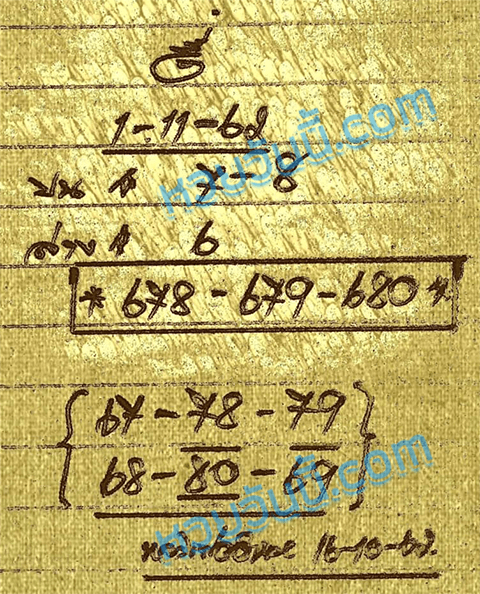 1-11-62
บน 7-8
ล่าง 6
* 678 - 679 - 680 *
67 - 78 - 79
68 - 80 - 69
16-10-62
หวยวันนี้.com
หวยวันนี้.com